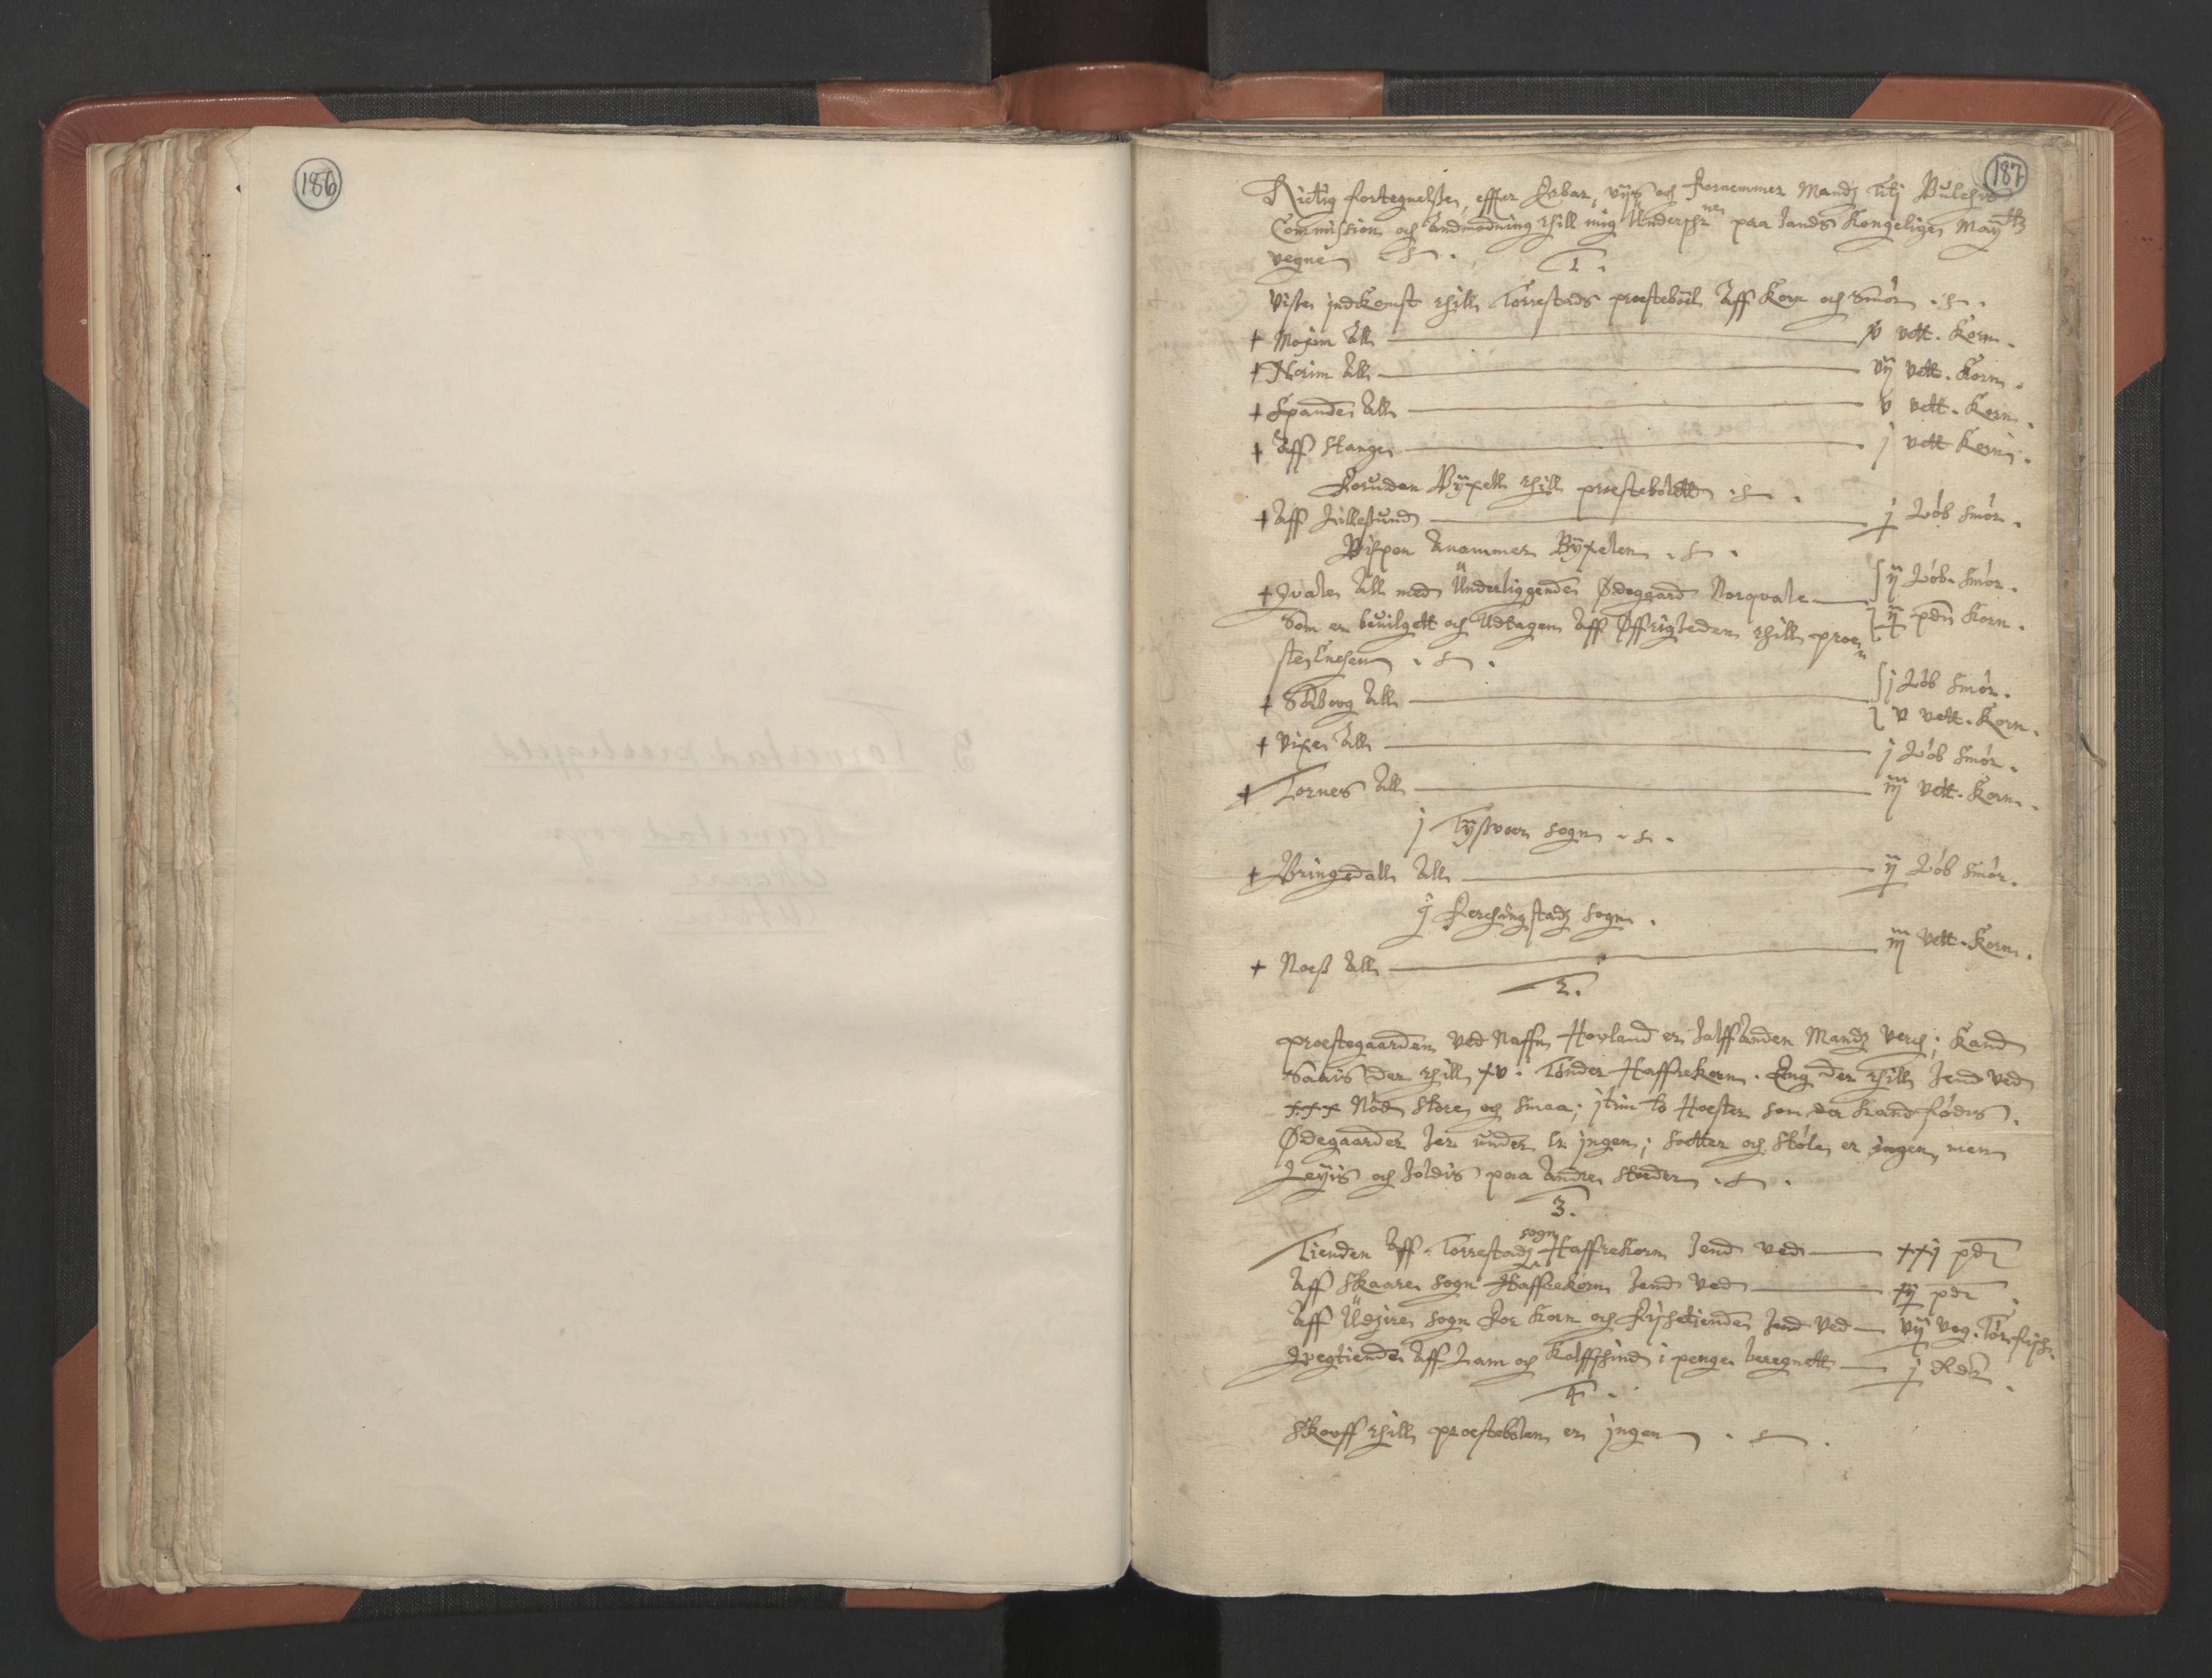 186
187
Richtig fortegnelße, effter Erbar, vÿs och fornemmer Mandz Titj Bulchis
Commission och Andmodning thill mig Underschr^nen paa hands Kongelige Maÿ^ttz
vegne
1.
Visse jndkomst thill Torrestads prestebóel Aff Korn och Smór
+ Moxim All — v vett. Korn.
+ Norim All — vij vett. Korn.
+ Spande All — v vett. Korn.
+ Aff Stange — j vett Korn.
Foruden Bÿxell thill prestebólett
+ Aff Killesund — j Lób Smór.
Bispen Anammer Bÿxelen
+ Qvale All med Underliggende Ødegaard Norqvale — ij Lób Smór.
ij pdn Korn.
Som er bevilgett och Udtagen Aff Øffrigheden thill proe
ste Enchen
+ Sörborg All — j Lób Smór.
v vett. Korn.
+ Vixe All — j Lób Smór.
+ Tornes All — iij vett. Korn.
j Tÿßvoer Sogn
+ Bringedall All — ij Lób Smór.
j Ferchingstadz Sogn.
+ Noeß All — iij vett. Korn.
2.
proestegaarden ved Naffn Hovland er halffanden Mandz verch; Kand
Saais der thill xv. Tónder Haffrekorn. Eng der thill hend ved
xxx Nód Store och Smaa; jtem to Hoester som der kand fódes.
Ødegaarder her under er jngen; Sœtter och Stóle er jngen, men
Leÿis och holdis paa Andre Stœder
3.
Tienden Aff Torrestadz sogn Haffrekorn hend ved — xxj pd
Aff Skaare Sogn Haffrekorn hend ved — xij pd
Aff Udzire Sogn for Korn och Fischetiende hend ved — vij vog. Tór fisch.
Qvegtiende Aff Lam och Kalffschind i penge beregnett — j Rdr
4.
Skouff thill proestebolen er jngen